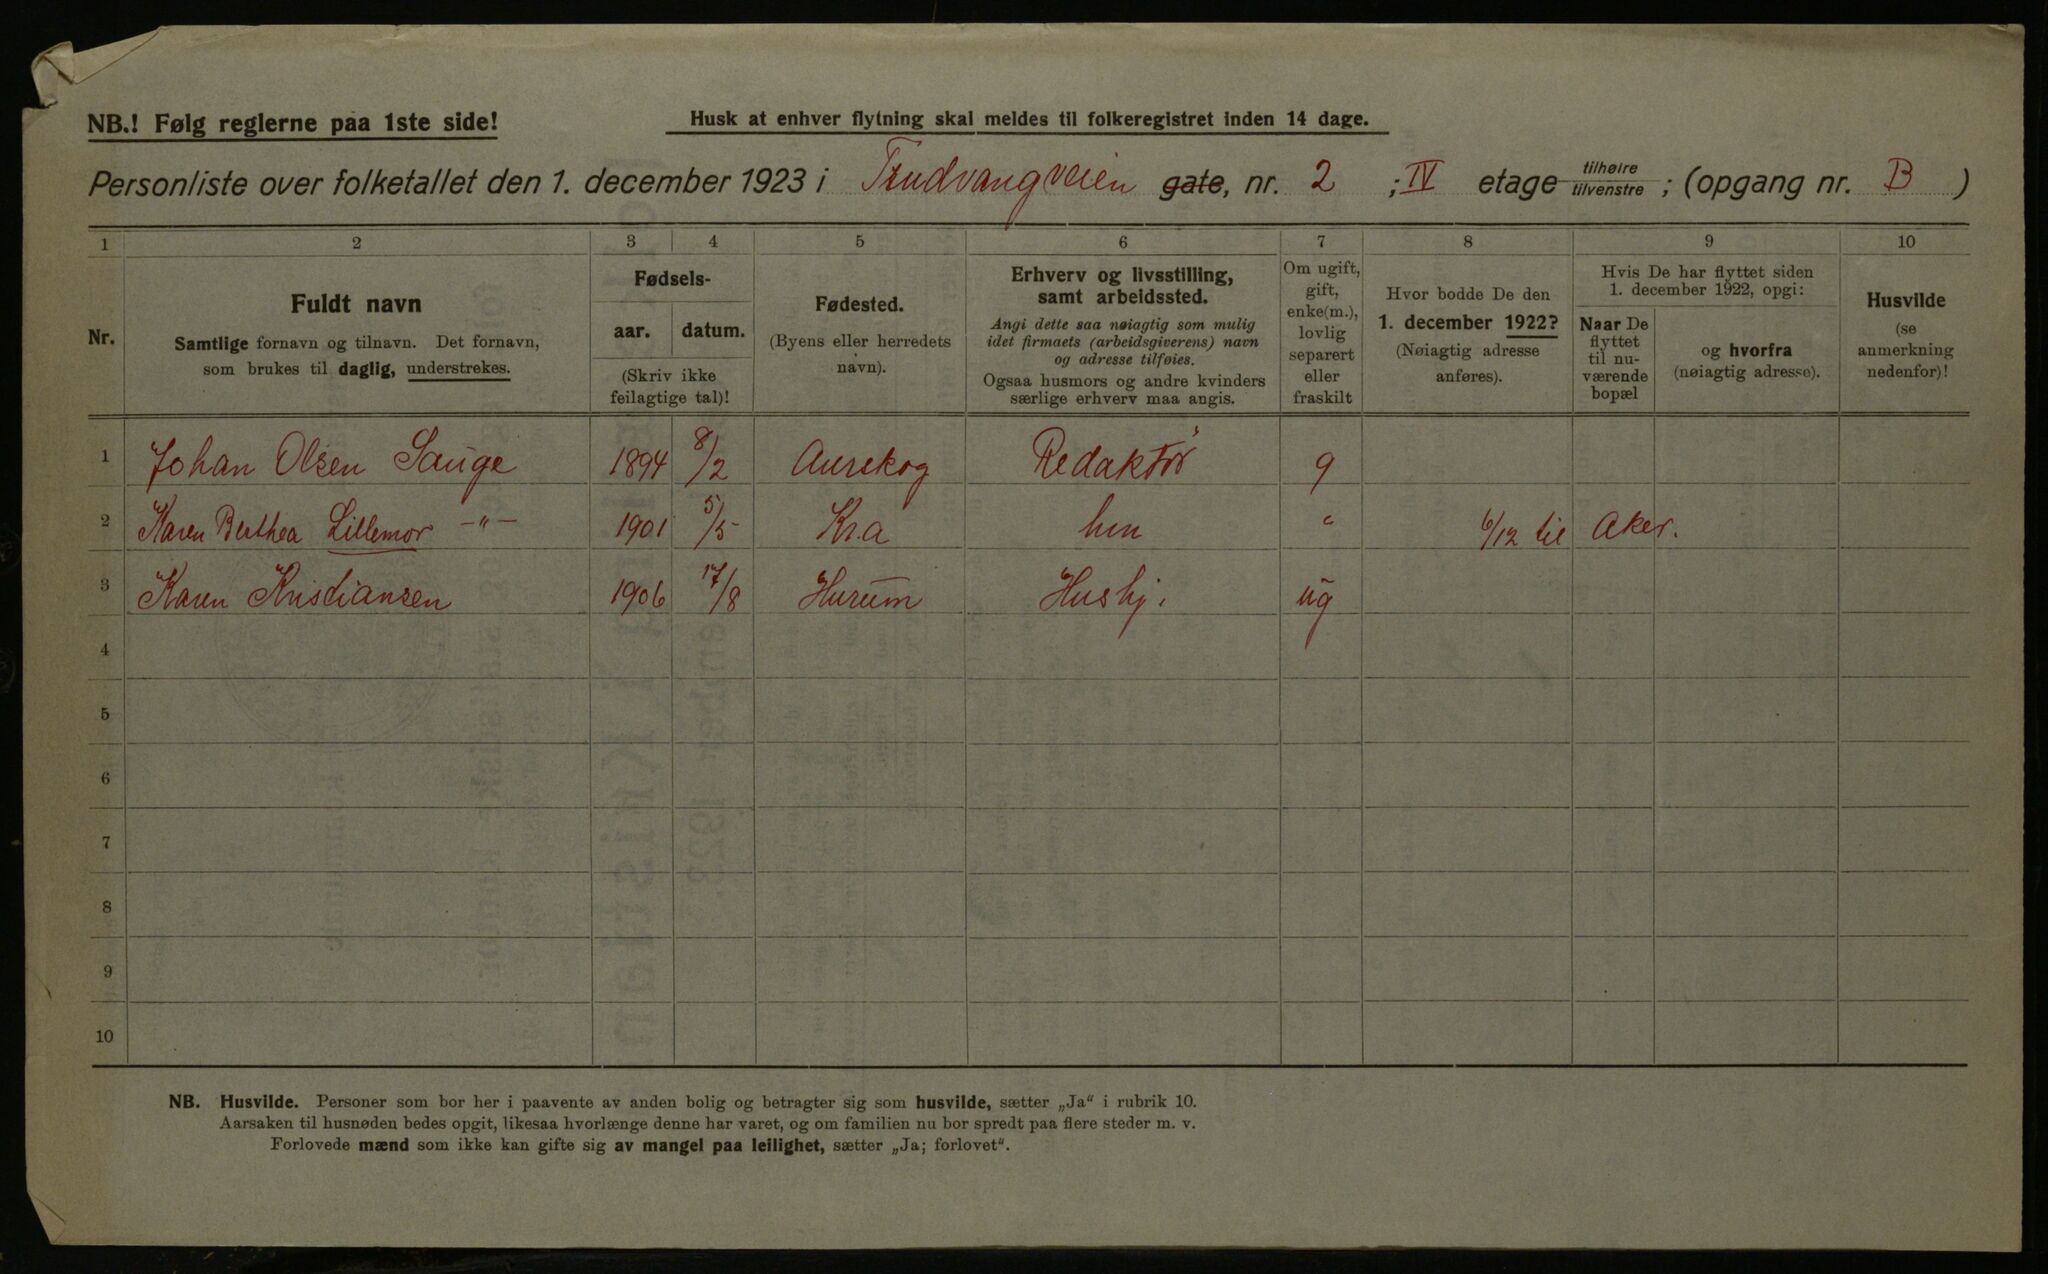 NB.! Følg reglerne paa 1ste side!
Husk at enhver flytning skal meldes til folkeregistret inden 14 dage.
Personliste over folketallet den 1. december 1923 i Trudvangveien gate, nr. 2 ; IV etage tilhøire tilvenstre ; (opgang nr. B )
1 2 3 4 5 6 7 8 9 10
Nr.
Fuldt navn
Samtlige fornavn og tilnavn. Det fornavn,
som brukes til daglig, understrekes.
Fødsels-
aar. datum.
(Skriv ikke
feilagtige tal)!
Fødested.
(Byens eller herredets
navn).
Erhverv og livsstilling,
samt arbeidssted.
Angi dette saa nøiagtig som mulig
idet firmaets (arbeidsgiverens) navn
og adresse tilføies.
Ogsaa husmors og andre kvinders
særlige erhverv maa angis.
Om ugift,
gift,
enke(m.),
lovlig
separert
eller
fraskilt
Hvor bodde De den
1. december 1922?
(Nøiagtig adresse
anføres).
Hvis De har flyttet siden
1. december 1922, opgi:
Naar De
flyttet
til nu-
værende
bopæl
og hvorfra
(nøiagtig adresse).
Husvilde
(se
anmerkning
nedenfor)!
1 Johan Olsen Sauge 1894 8/2 Aurskog Redaktør g
2 Karen Berthea Lillemor -"- 1901 5/5 Kr.a hm " 6/12 til Aker.
3 Karen Kristiansen 1906 17/8 Hurum Hushj. ug
4
5
6
7
8
9
10
NB. Husvilde. Personer som bor her i paavente av anden bolig og betragter sig som husvilde, sætter „Ja“ i rubrik 10.
Aarsaken til husnøden bedes opgit, likesaa hvorlænge denne har varet, og om familien nu bor spredt paa flere steder m. v.
Forlovede mænd som ikke kan gifte sig av mangel paa leilighet, sætter „Ja; forlovet“.